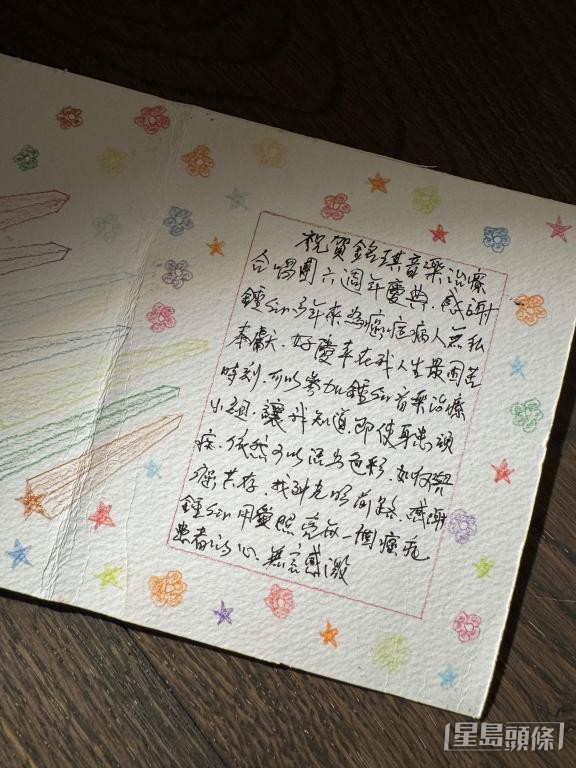 祝賀銘琪音樂治療
合唱團六週年慶典．感謝
鍾Sir多年來為癌症病人無私
奉獻．好慶幸在我人生最困苦
時刻．可以參加鍾Sir音樂治療
小組．讓我知道．即使身患頑
疾．依然可以活出色彩．如何與
癌共存．找到光明前路．感謝
鍾Sir用愛照亮每一個癌症
患者的心．無言感激
星島頭條